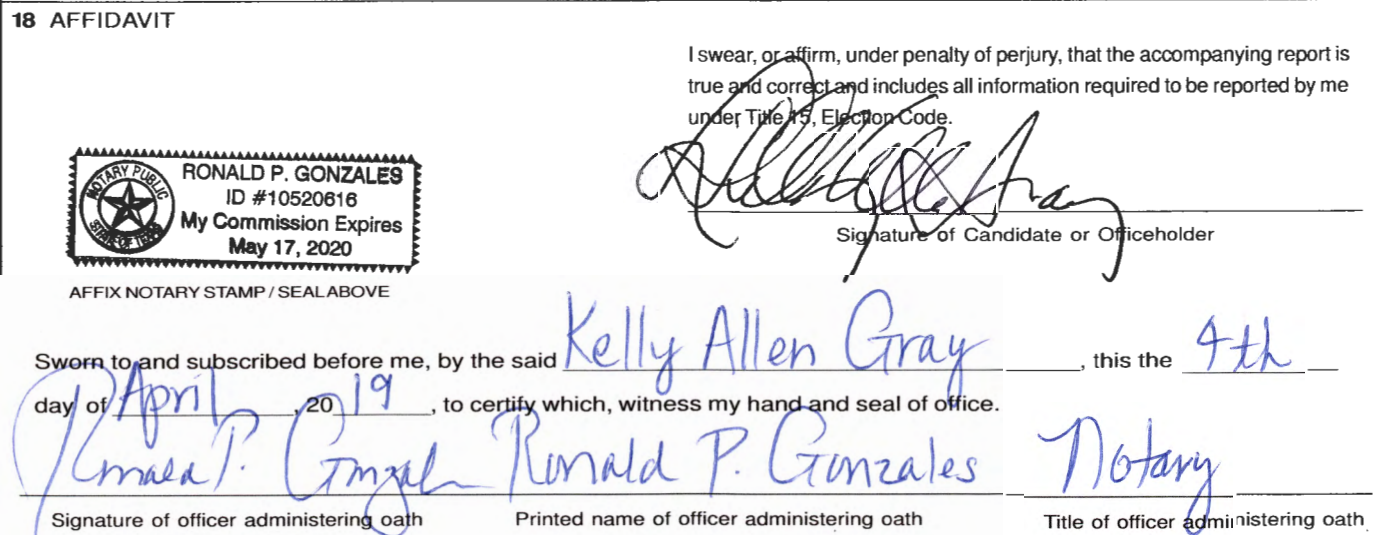 18 AFFIDAVIT
I swear, or affirm, under penalty of perjury, that the accompanying report is
true and correct and includes all information required to be reported by me
under Title 15, Election Code.
NOTARY PUBLIC
STATE OF TEXAS
RONALD P. GONZALES
ID #10520616
My Commission Expires
May 17, 2020
Signature of Candidate or Officeholder
AFFIX NOTARY STAMP / SEAL ABOVE
Sworn to and subscribed before me, by the said Kelly Allen Gray, this the 4th
day of April, 20 19, to certify which, witness my hand and seal of office.
Ronald P. Gonzales Ronald P. Gonzales Notary
Signature of officer administering oath Printed name of officer administering oath Title of officer administering oath